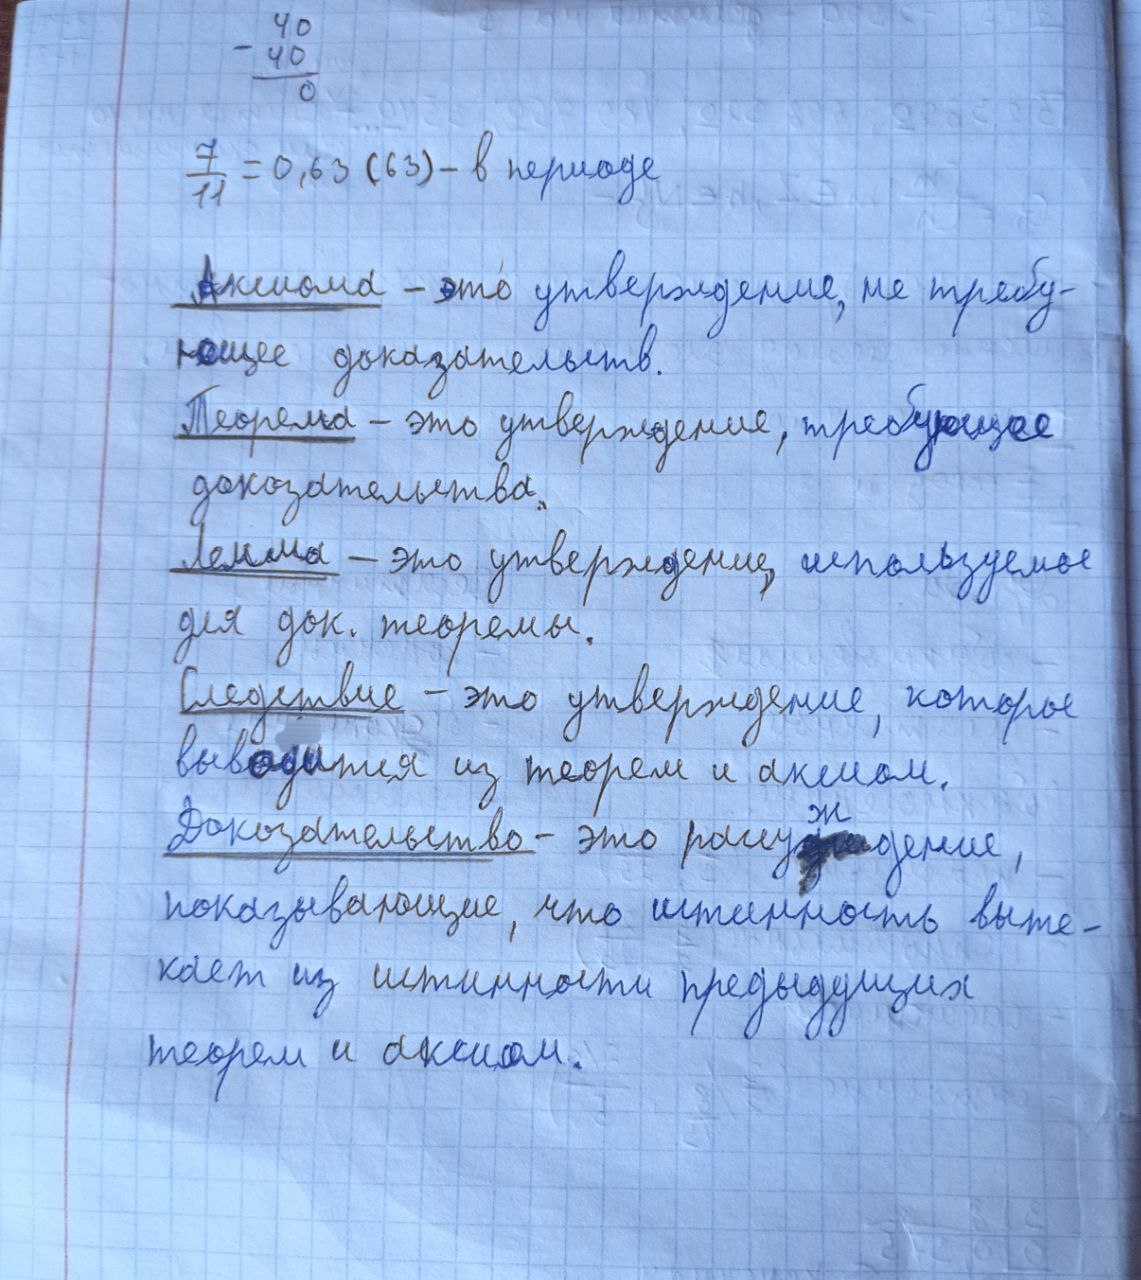 40
- 40
0
7/11 = 0,63 (63) - в периоде
Аксиома - это утверждение, не требу-
ющее доказательств.
Теорема - это утверждение, требующее
докозательства.
Лемма - это утверждение, используемое
для док. теоремы.
Следствие - это утверждение, которое
выводится из теорем и аксиом.
Докозательство - это рассуждение,
показывающие, что истинность выте-
кает из истинности предыдущих
теорем и аксиом.